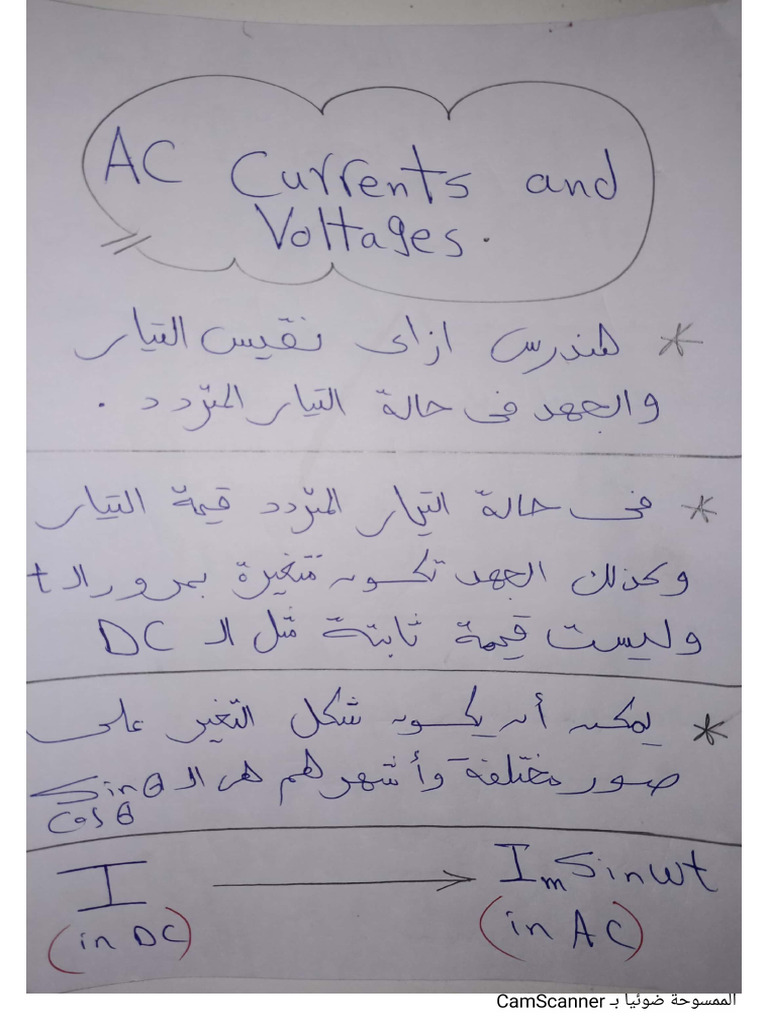 AC Currents and
Voltages.
* هندرس ازاى نقيس التيار
والجهد فى حالة التيار المتردد .
* فى حالة التيار المتردد قيمة التيار
وكذلك الجهد تكون متغيرة بمرور الـ t
وليست قيمة ثابتة مثل الـ DC
* يمكن أن يكون شكل التغير على
صور مختلفة وأشهرهم هى الـ Sinθ
Cosθ
I → Im Sinωt
(in DC) (in AC)
الممسوحة ضوئيا بـ CamScanner